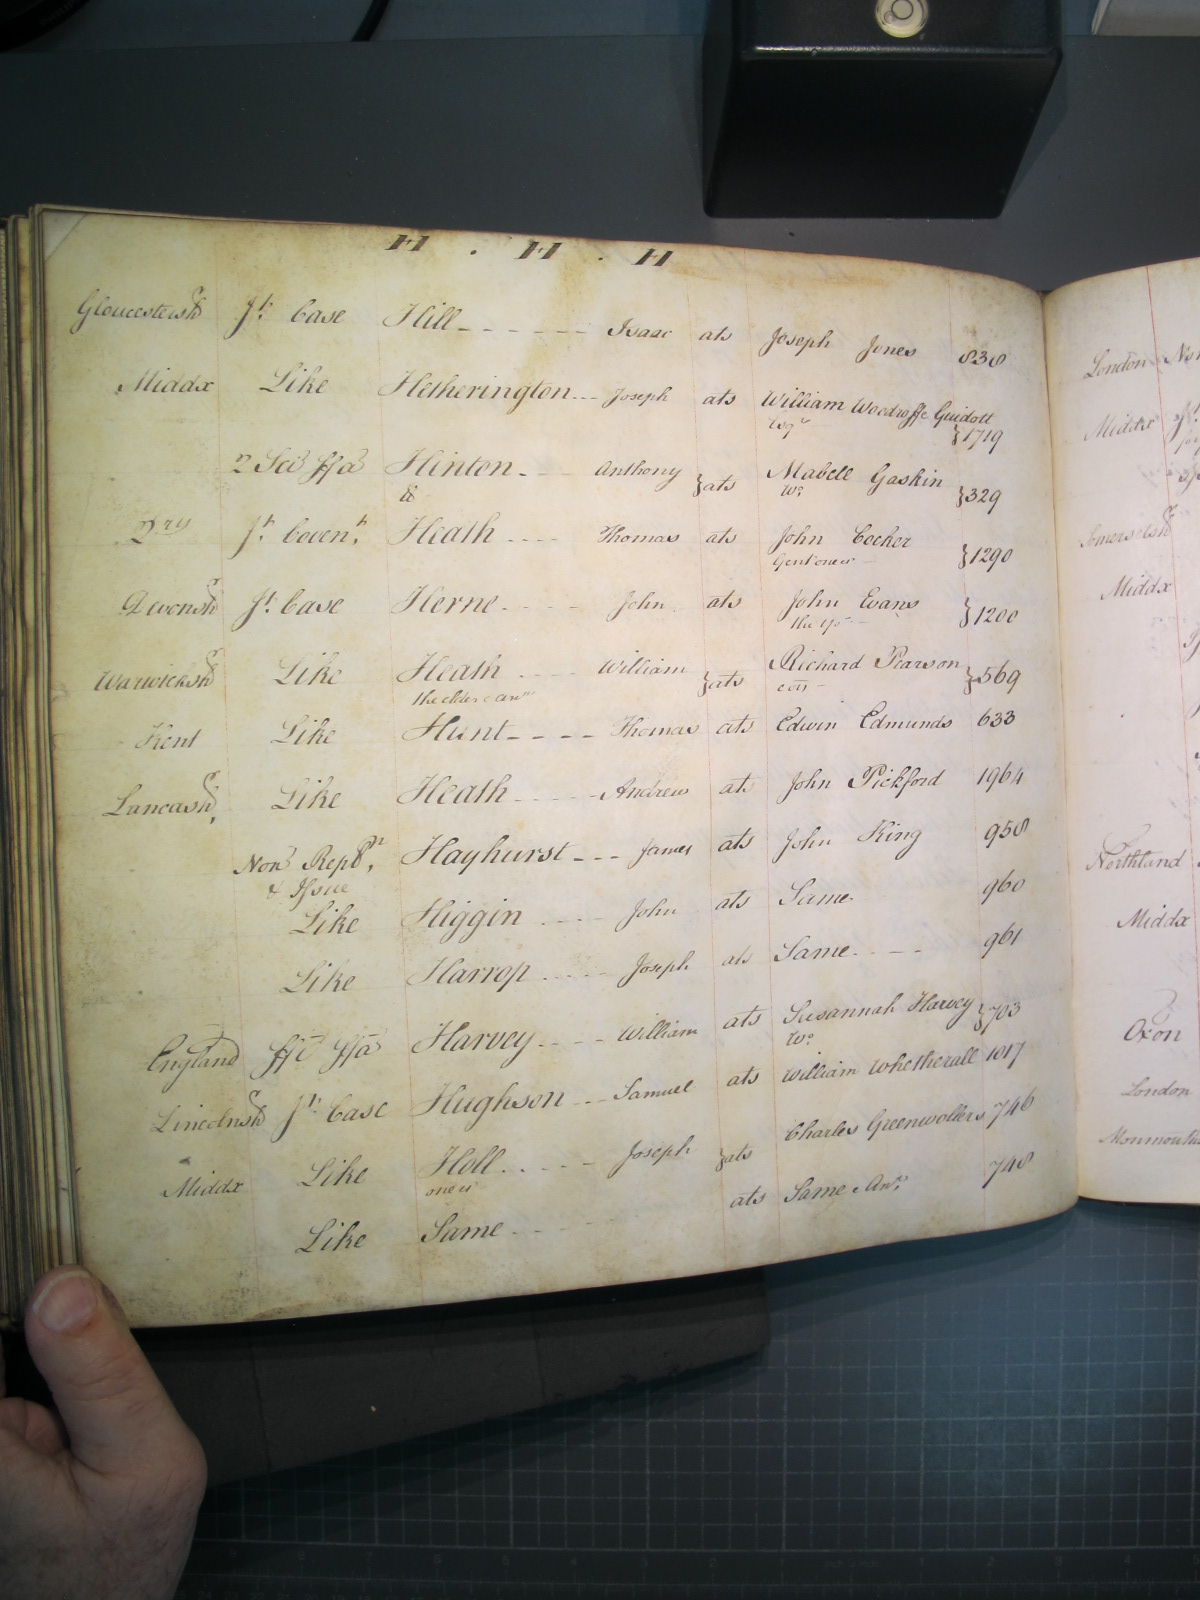 H . H . H
Gloucestersh Jt. Case Hill Isaac ats Joseph Jones 838
Middx Like Hetherington Joseph ats William Woodroffe Guidott
Esqr }1719
2 Sci ffa Hinton Anthony }ats Mabell Gaskin }329
& Wo.
Jt. Covent. Heath Thomas ats John Cocker }1290
Gent one &c
Devonsh Jt. Case Herne John ats John Evans }1200
the yr
Warwicksh Like Heath William }ats Richard Pearson }569
the elder & anr
Kent Like Hunt Thomas ats Edwin Edmunds 633
Lancash Like Heath Andrew ats John Pickford 1964
Non Repln. Hayhurst James ats John King 958
& Issue
Like Higgin John ats Same 960
Like Harrop Joseph ats Same 961
England ffi ffa Harvey William ats Susannah Harvey }703
Wo.
Lincolnsh Jt. Case Hughson Samuel ats William Whetherall 1017
Middx Like Holl Joseph }ats Charles Greenwollers 746
one &c
Like Same ats Same & Anr. 748
London
Middx
Somersetsh
Middx
Northland
Middx
Oxon
London